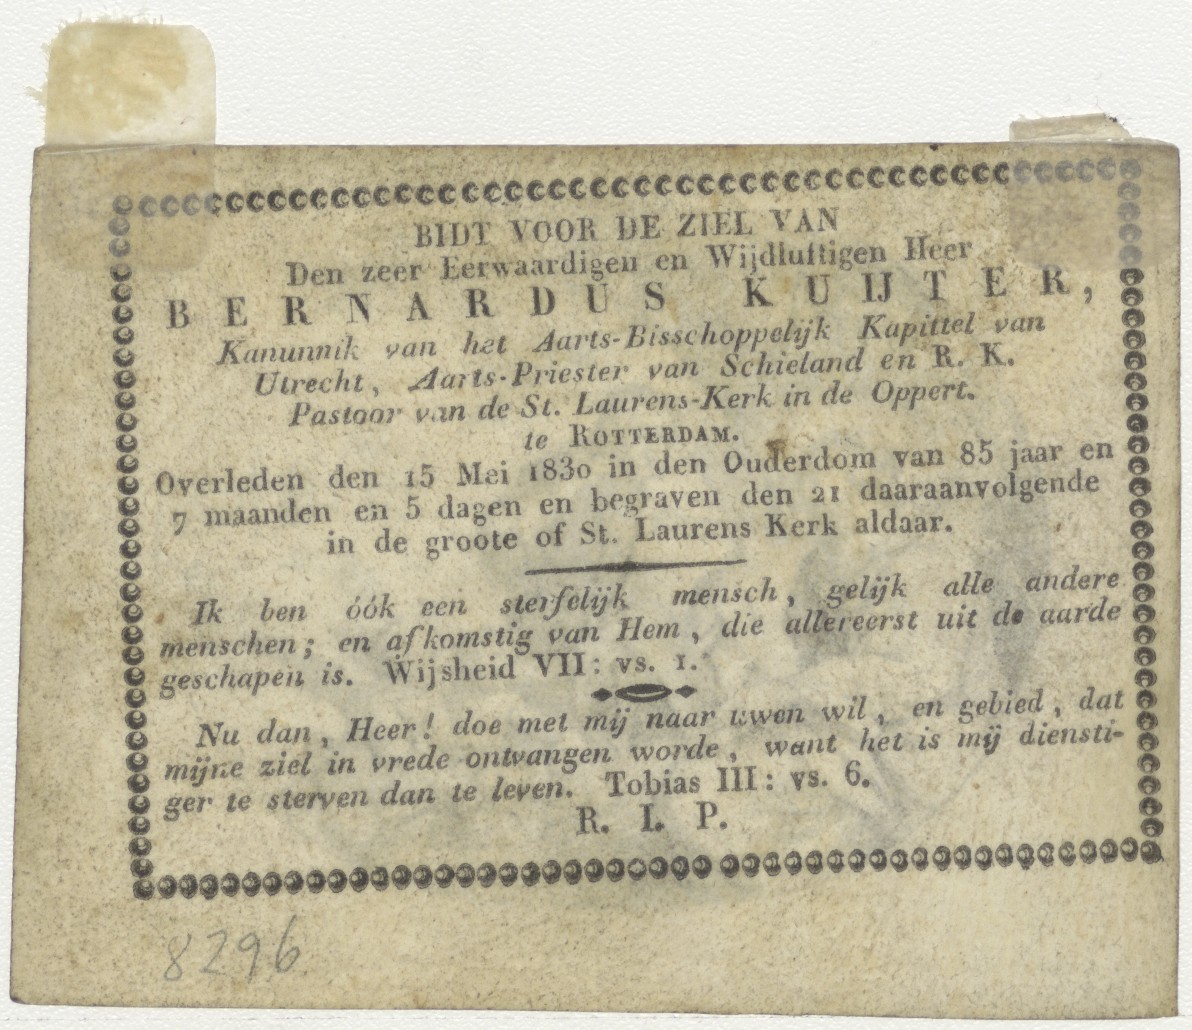 BIDT VOOR DE ZIEL VAN
Den zeer Eerwaardigen en Wijdluftigen Heer
BERNARDUS KUIJTER,
Kanunnik van het Aarts-Bisschoppelijk Kapittel van
Utrecht, Aarts-Priester van Schieland en R. K.
Pastoor van de St. Laurens-Kerk in de Oppert.
te ROTTERDAM.
Overleden den 15 Mei 1830 in den Ouderdom van 85 jaar en
7 maanden en 5 dagen en begraven den 21 daaraanvolgende
in de groote of St. Laurens Kerk aldaar.
Ik ben óók een sterfelijk mensch, gelijk alle andere
menschen; en afkomstig van Hem, die allereerst uit de aarde
geschapen is. Wijsheid VII: vs. 1.
Nu dan, Heer! doe met mij naar uwen wil, en gebied, dat
mijne ziel in vrede ontvangen worde, want het is mij diensti-
ger te sterven dan te leven. Tobias III: vs. 6.
R. I. P.
8296